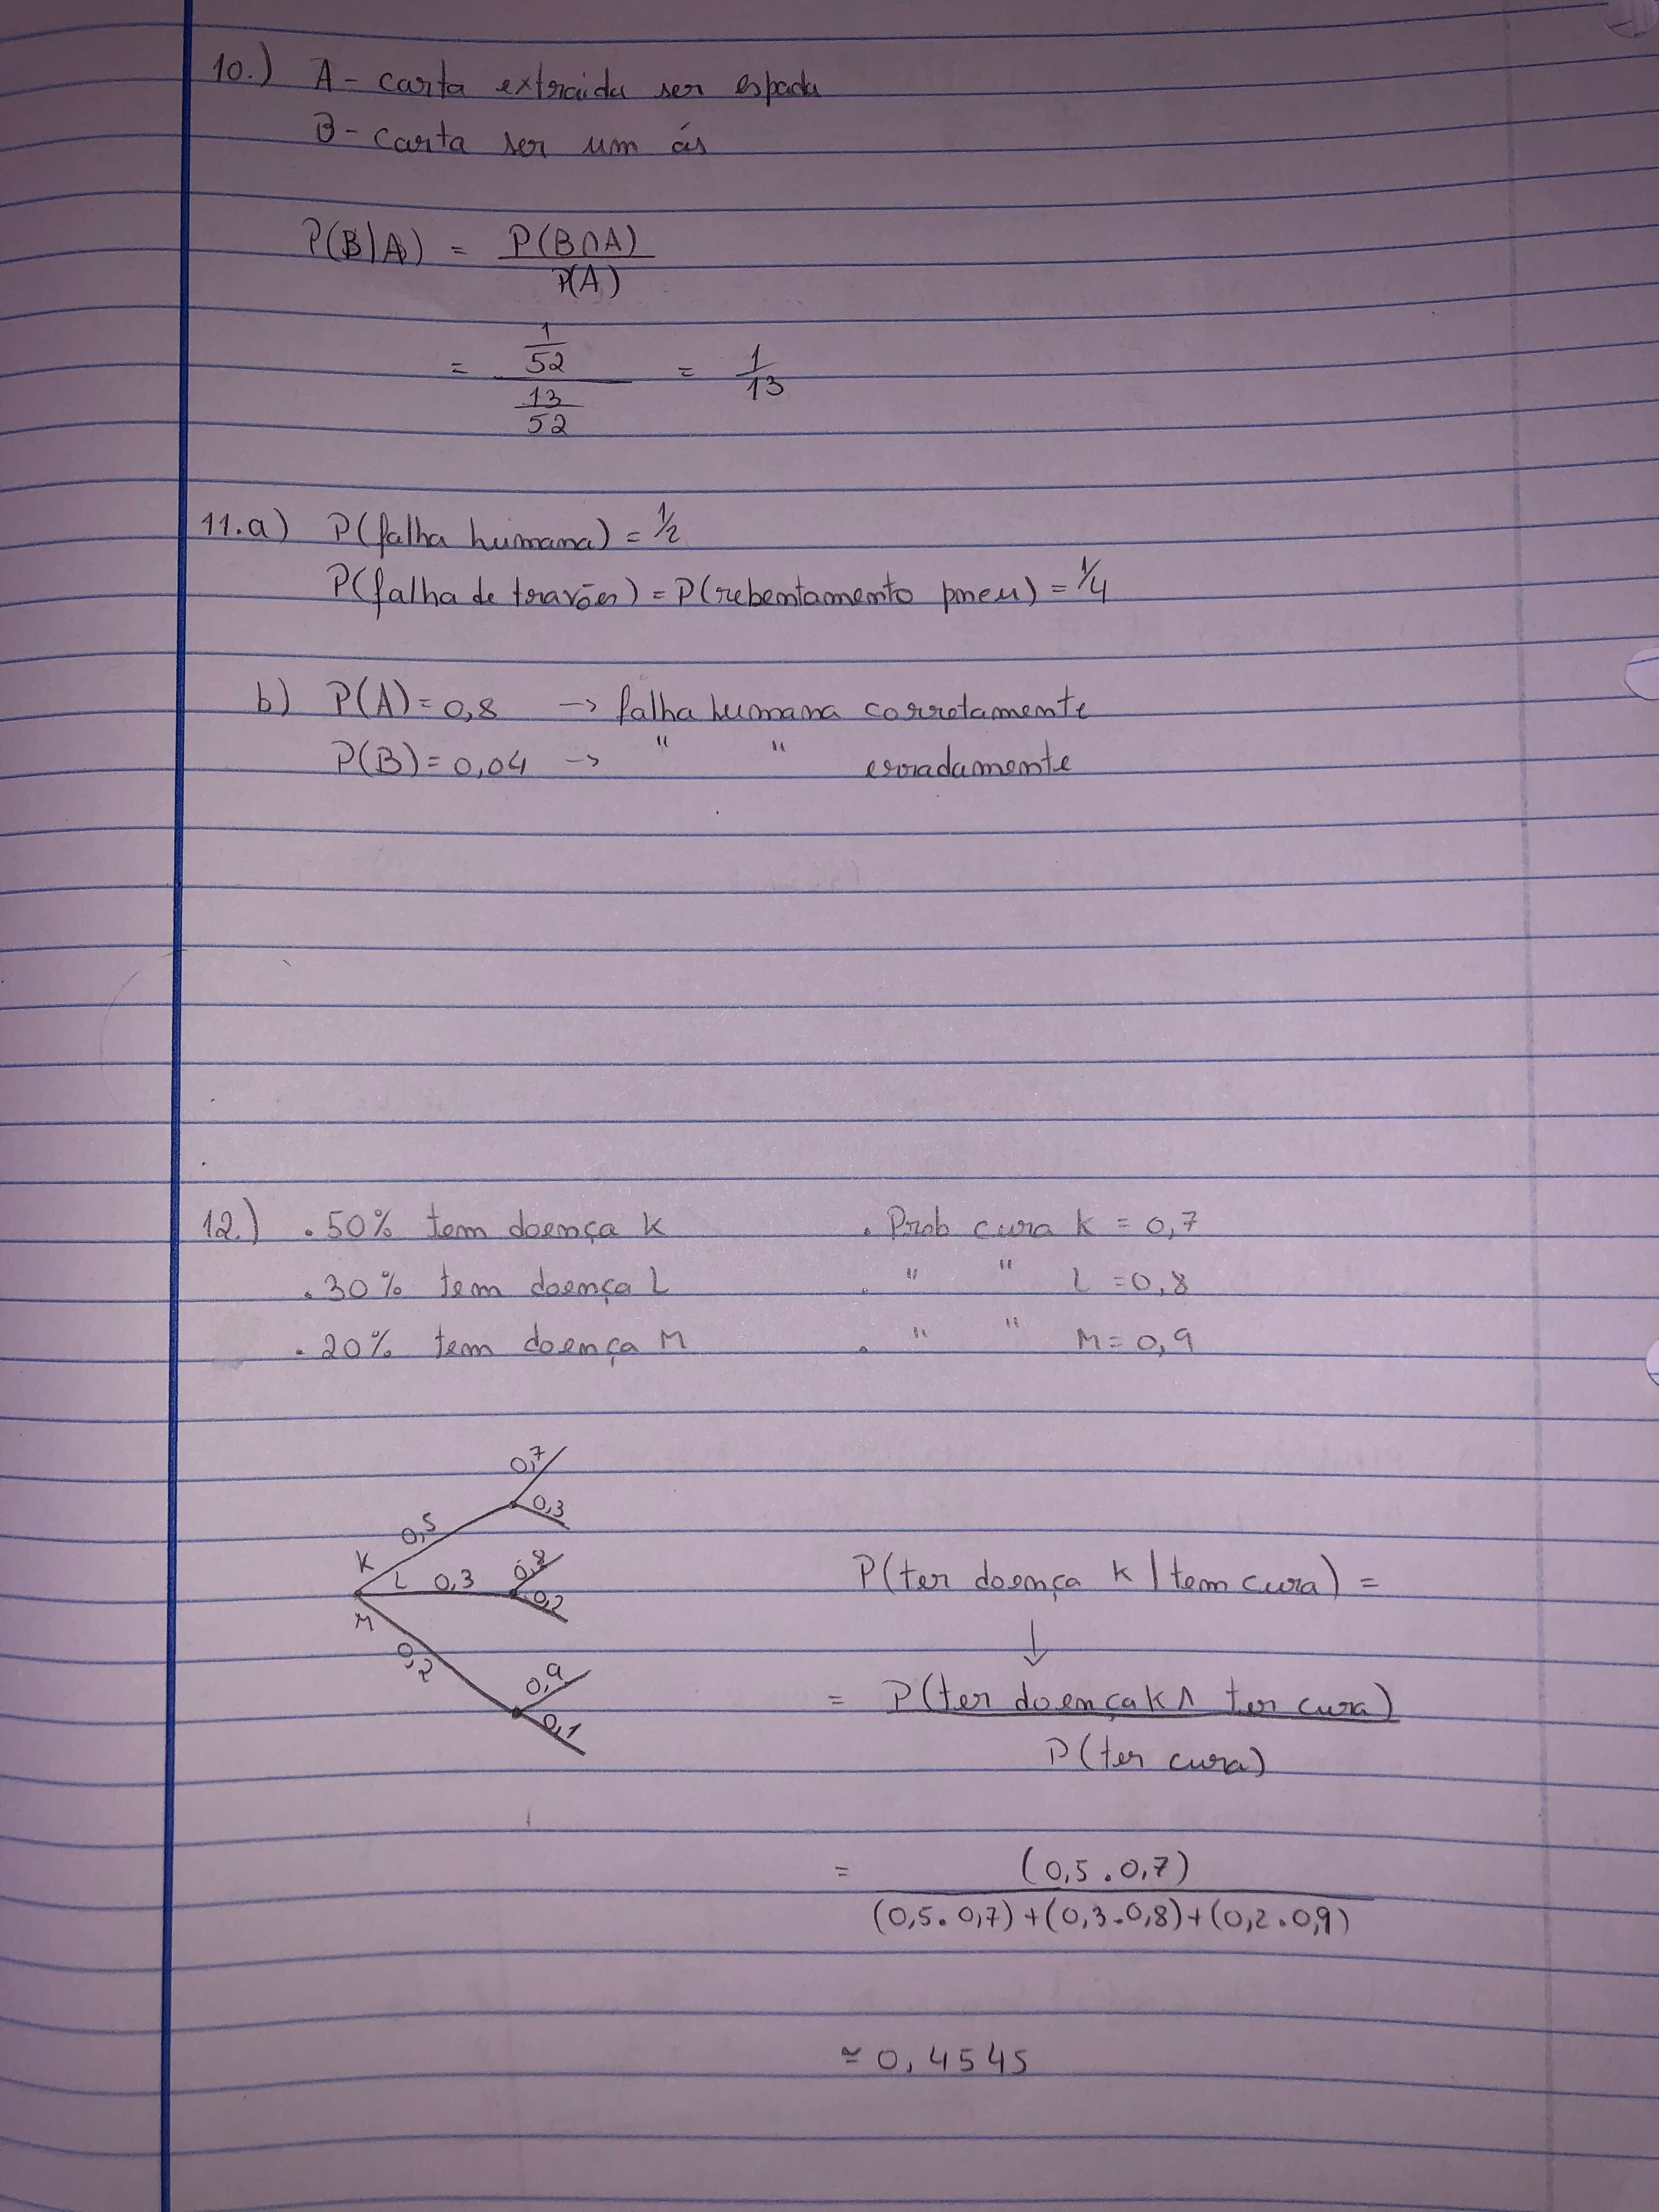 10.) A - carta extraida ser espada
B - carta ser um ás
P(B|A) = P(B∩A)
P(A)
= 1/52 = 1/13
13/52
11.a) P(falha humana) = 1/2
P(falha de travões) = P(rebentamento pneu) = 1/4
b) P(A) = 0,8 -> falha humana corretamente
P(B) = 0,04 -> " " erradamente
12.) . 50% tem doença K . Prob cura K = 0,7
. 30% tem doença L . " " L = 0,8
. 20% tem doença M . " " M = 0,9
0,7
0,3
0,5
K
L 0,3 0,8
0,2
M
0,2
0,9
0,1
P(ter doença K | tem cura) =
↓
= P(ter doença K ∧ ter cura)
P(ter cura)
= (0,5 . 0,7)
(0,5 . 0,7) + (0,3 . 0,8) + (0,2 . 0,9)
≃ 0,4545